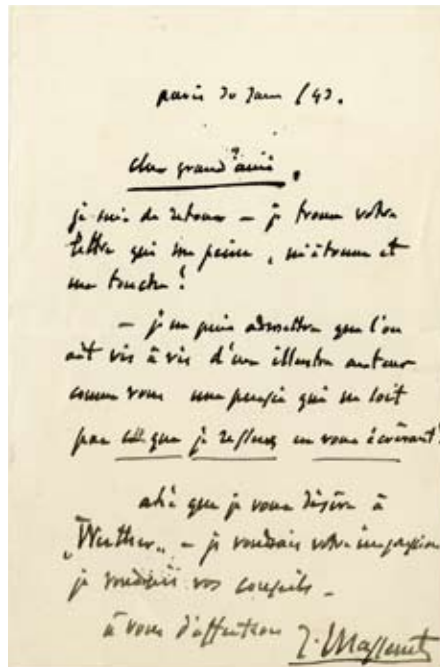 paris 20 Janv /93.
cher grand ami,
je suis de retour – je trouve votre
lettre qui me peine, m'étonne et
me touche!
– je ne puis admettre que l'on
ait vis à vis d'un illustre auteur
comme vous une pensée qui ne soit
pas celle que je en vous écrivant!
que je vous désire à
"Werther" – je voudrais votre impression
je voudrais vos conseils –
à vous d'affection J. Massenet